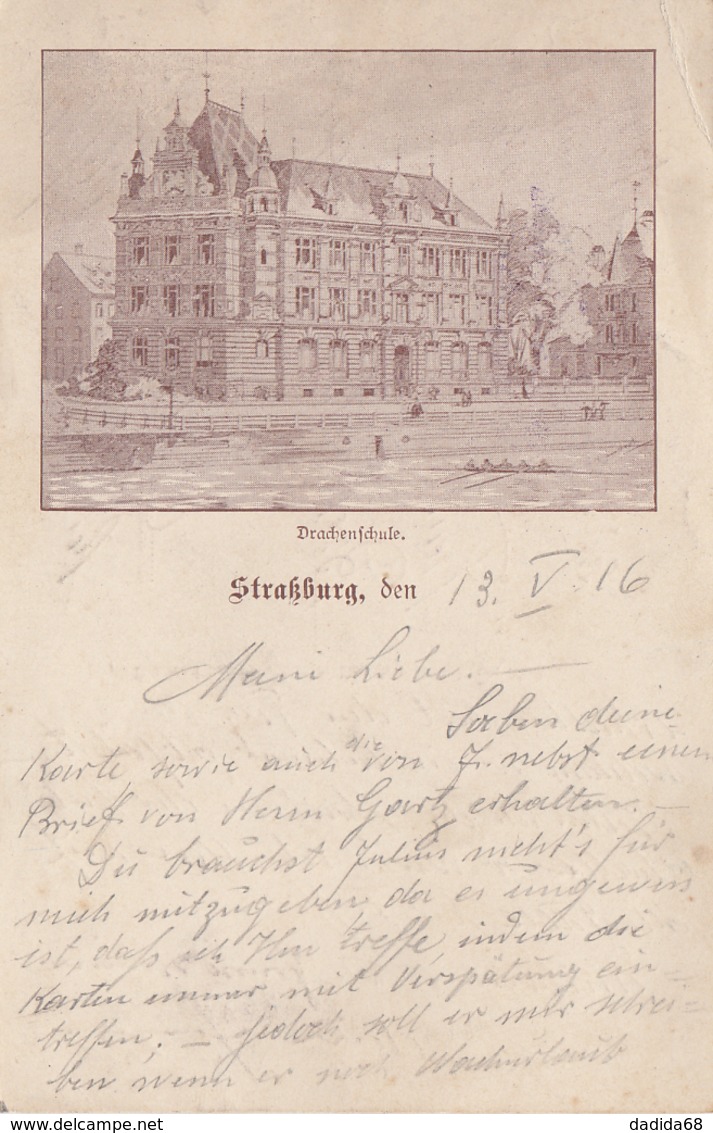 Drachenschule.
Straßburg, den 13. V. 16
Meine Liebe. —
Soeben deine
Karte sowie auch die von J. nebst einen
Brief von Herrn Gartz erhalten. —
Du brauchst Julius nicht's für
mich mitzugeben da es ungewis
ist, daß ich Ihn treffe, indem die
Karten immer mit Verspätung ein-
treffen; — Jedoch soll er mir schrei-
ben wenn er nach
dadida68